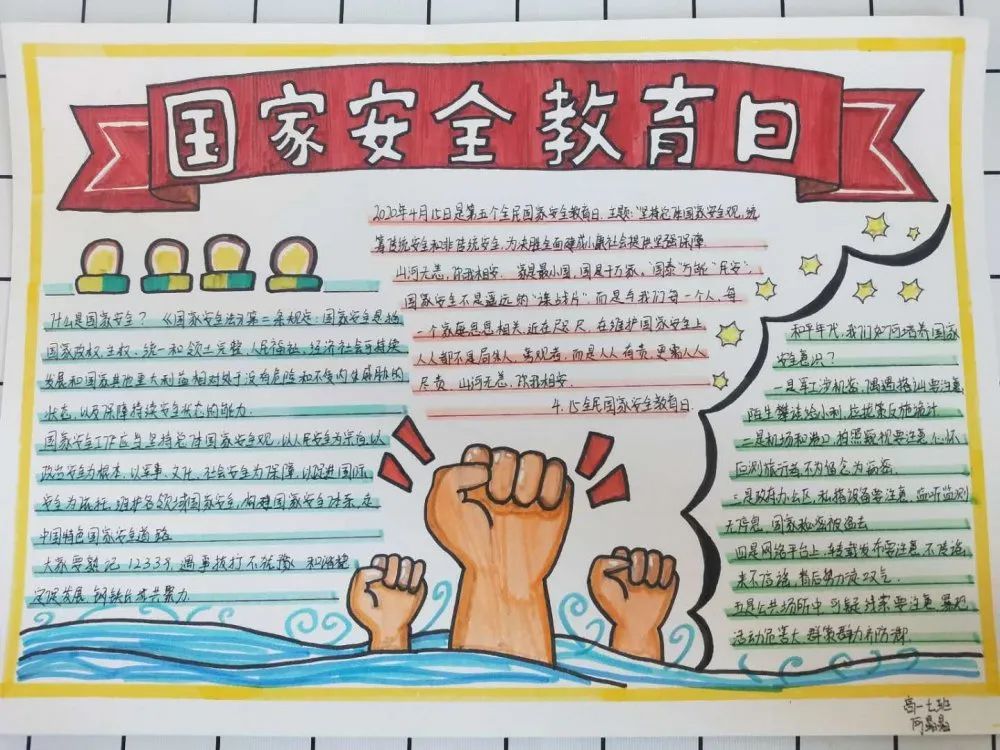 国家安全教育日
2020年4月15日是第五个全民国家安全教育日,主题:"坚持总体国家安全观,统
筹传统安全和非传统安全,为决胜全面建成小康社会提供坚强保障
山河无恙,你我相安. 家是最小国,国是千万家。"国泰"方能"民安",
国家安全不是遥远的"谍战片",而是与我们每一个人、每
一个家庭息息相关,近在咫尺,在维护国家安全上
人人都不是局外人、旁观者,而是人人有责,更需人人
尽责,山河无恙,你我相安.
4.15全民国家安全教育日.
什么是国家安全?《国家安全法》第二条规定:国家安全是指
国家政权、主权、统一和领土完整、人民福祉、经济社会可持续
发展和国家其他重大利益相对处于没有危险和不受内外威胁的
状态,以及保障持续安全状态的能力.
国家安全工作应当坚持总体国家安全观,以人民安全为宗旨,以
政治安全为根本,以军事、文化、社会安全为保障,以促进国际
安全为依托,维护各领域国家安全,构建国家安全体系,走
中国特色国家安全道路
大家要熟记12339,遇事拨打不犹豫 和谐稳
定促发展,钢铁长城共聚力
和平年代,我们如何培养国家
安全意识?
一是军工涉机密,偶遇搭讪要注意
陌生攀谈给小利,
二是机场和港口,拍照窥视要注意,心怀
三是政府办公区,私搭设备要注意,监听监测
无信息,国家秘密
四是网络平台上,转载发布要注意,不传谣,
来不信谣,背后势力
五是公共场所中,可疑线索要注意,暴恐
活动危害大,群策群力齐防
高一七班